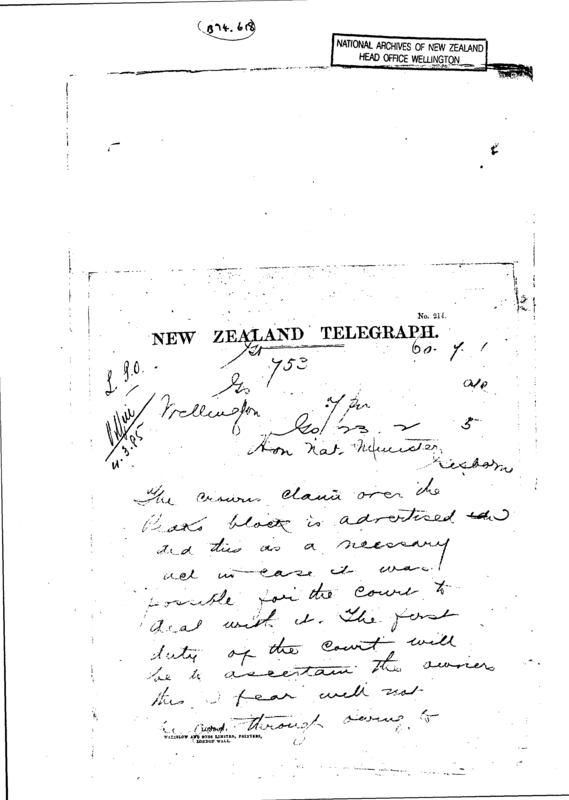 (B74.618)
NATIONAL ARCHIVES OF NEW ZEALAND
HEAD OFFICE WELLINGTON
No. 214.
NEW ZEALAND TELEGRAPH.
753
Go
L. P.O.
Wellington
Go 23. 2 5
4.3.85
Hon Nat. Minister
Gisborn
The crowns claim over the
block is advertised
did this as a necessary
act in case it was
possible for the Court to
deal with it. The first
duty of the Court will
be to ascertain the owners
this I fear will not
be through owing to
WATERLOW AND SONS LIMITED, PRINTERS,
LONDON WALL.